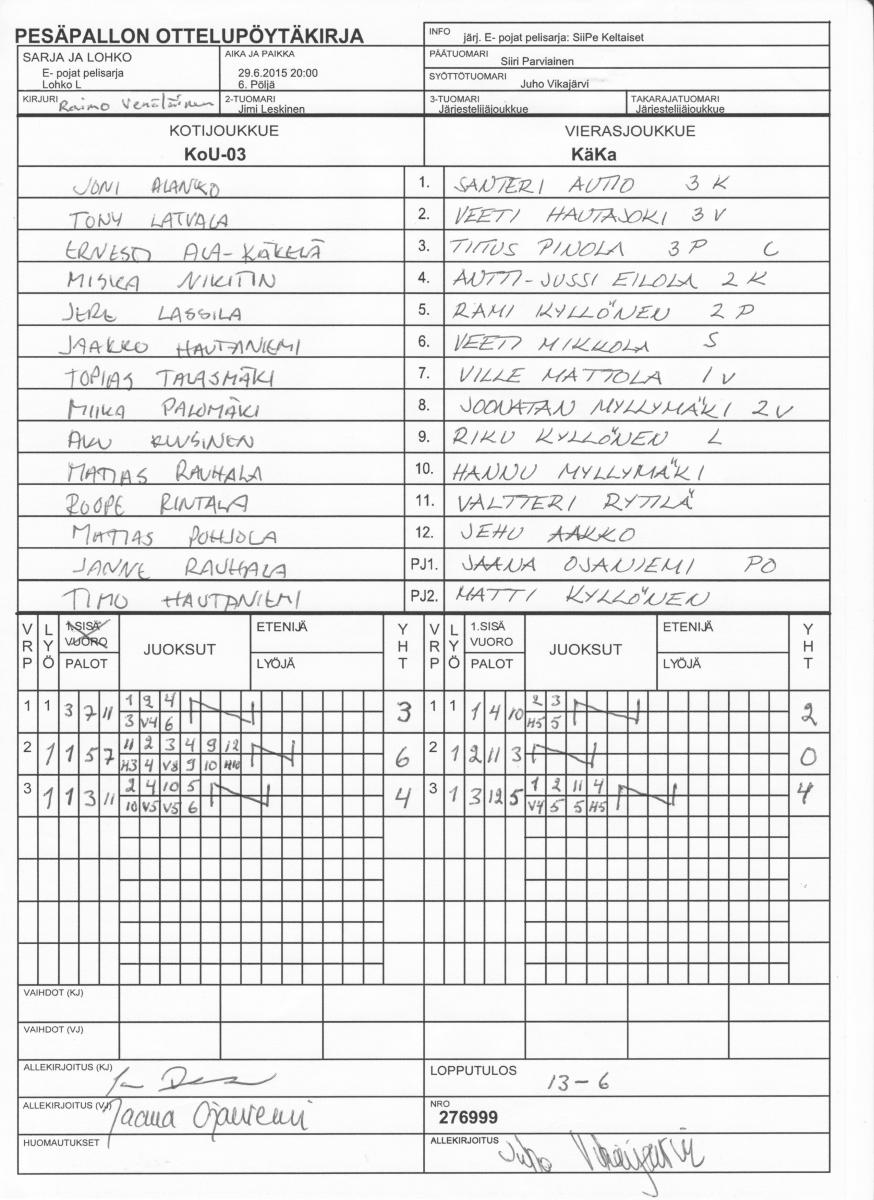 PESÄPALLON OTTELUPÖYTÄKIRJA
INFO järj. E- pojat pelisarja: SiiPe Keltaiset
SARJA JA LOHKO
E- pojat pelisarja
Lohko L
AIKA JA PAIKKA
29.6.2015 20:00
6. Pöljä
PÄÄTUOMARI
Siiri Parviainen
SYÖTTÖTUOMARI
Juho Vikajärvi
KIRJURI Raimo Venäläinen
2-TUOMARI
Jimi Leskinen
3-TUOMARI
Järjestelijäjoukkue
TAKARAJATUOMARI
Järjestelijäjoukkue
KOTIJOUKKUE VIERASJOUKKUE
KoU-03 KäKa
JONI ALANKO 1. SANTERI AUTIO 3 K
TONY LATVALA 2. VEETI HAUTAJOKI 3 V
ERNESTI ALA-KÄKELÄ 3. TIITUS PINOLA 3 P C
MISKA NIKITIN 4. ANTTI-JUSSI EILOLA 2 K
JERE LASSILA 5. RAMI KYLLÖNEN 2 P
JAAKKO HAUTANIEMI 6. VEETI MIKKOLA S
TOPIAS TALASMÄKI 7. VILLE MATTOLA 1 V
MIIKA PALOMÄKI 8. JOONATAN MYLLYMÄKI 2 V
AKU KUUSINEN 9. RIKU KYLLÖNEN L
MATIAS RAUHALA 10. HANNU MYLLYMÄKI
ROOPE RINTALA 11. VALTTERI RYTILÄ
MATIAS POHJOLA 12. JEHU AAKKO
JANNE RAUHALA PJ1. JAANA OJANIEMI PO
TIMO HAUTANIEMI PJ2. MATTI KYLLÖNEN
VRP LYÖ 1.SISÄ VUORO PALOT JUOKSUT ETENIJÄ LYÖJÄ YHT VRP LYÖ 1.SISÄ VUORO PALOT JUOKSUT ETENIJÄ LYÖJÄ YHT
1 1 3 7 11 1 2 4 3 1 1 1 4 10 2 3 2
3 V4 6 H5 5
2 1 1 5 7 11 2 3 4 9 12 6 2 1 2 11 3 0
H3 4 V8 9 10 H10
3 1 1 3 11 2 4 10 5 4 3 1 3 12 5 1 2 11 4 4
10 V5 V5 6 V4 5 5 H5
VAIHDOT (KJ)
VAIHDOT (VJ)
ALLEKIRJOITUS (KJ)
LOPPUTULOS 13-6
ALLEKIRJOITUS (VJ) Jaana Ojaniemi
NRO
276999
HUOMAUTUKSET
ALLEKIRJOITUS Juho Vikajärvi